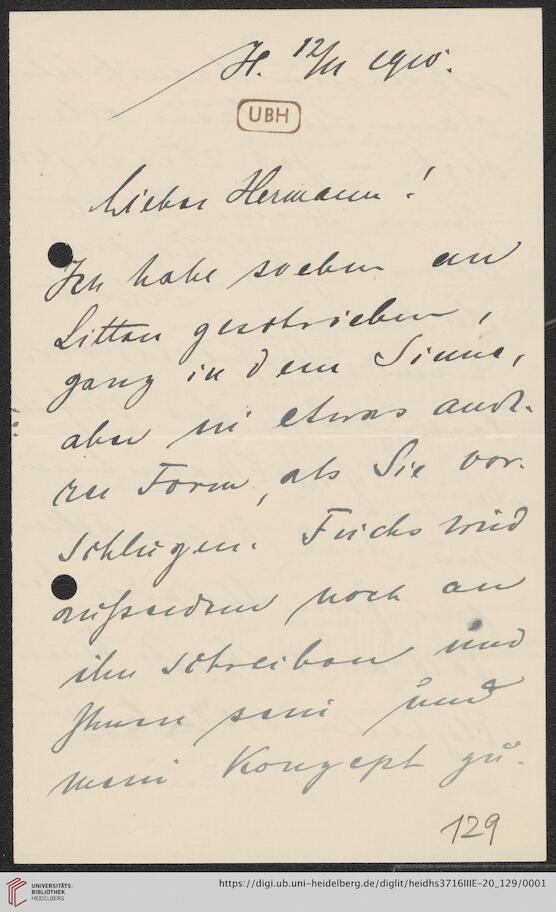 H. 12/II 1910.
UBH
Lieber Hermann!
Ich habe soeben an
Littan geschrieben,
ganz in dem Sinne,
aber in etwas ande-
rer Form, als Sie vor-
schlugen. Fuchs wird
außerdem noch an
ihn schreiben und
Ihnen sein und
mein Konzept zu-
129
UNIVERSITÄTS-
BIBLIOTHEK
HEIDELBERG
https://digi.ub.uni-heidelberg.de/diglit/heidhs3716IIIE-20_129/0001